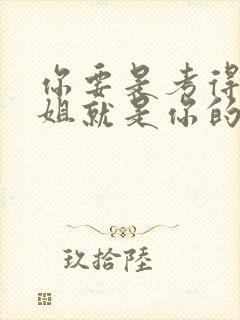 你要是考得
姐就是你的
玖拾陸